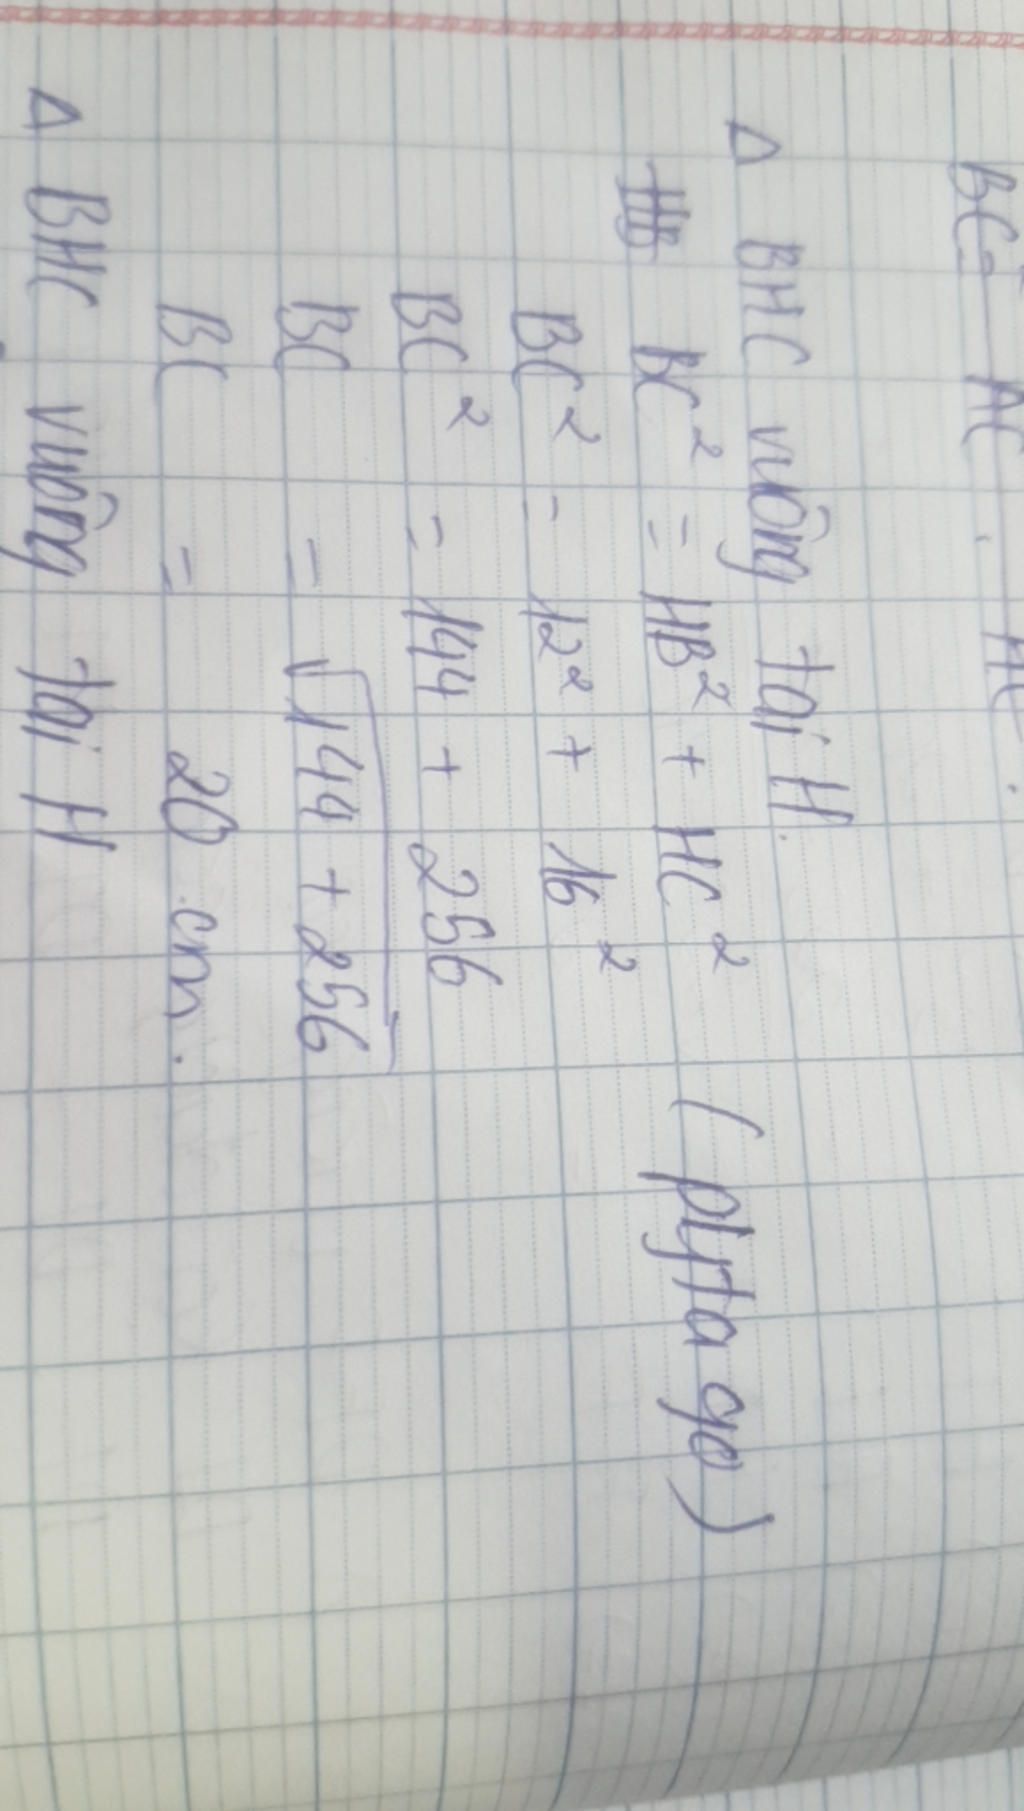 BC² = AC.
Δ BHC vuông tại H.
BC² = HB² + HC² (plyta go)
BC² = 12² + 16²
BC² = 144 + 256
BC = √144 + 256
BC = 20 cm.
Δ BHC vuông tại H